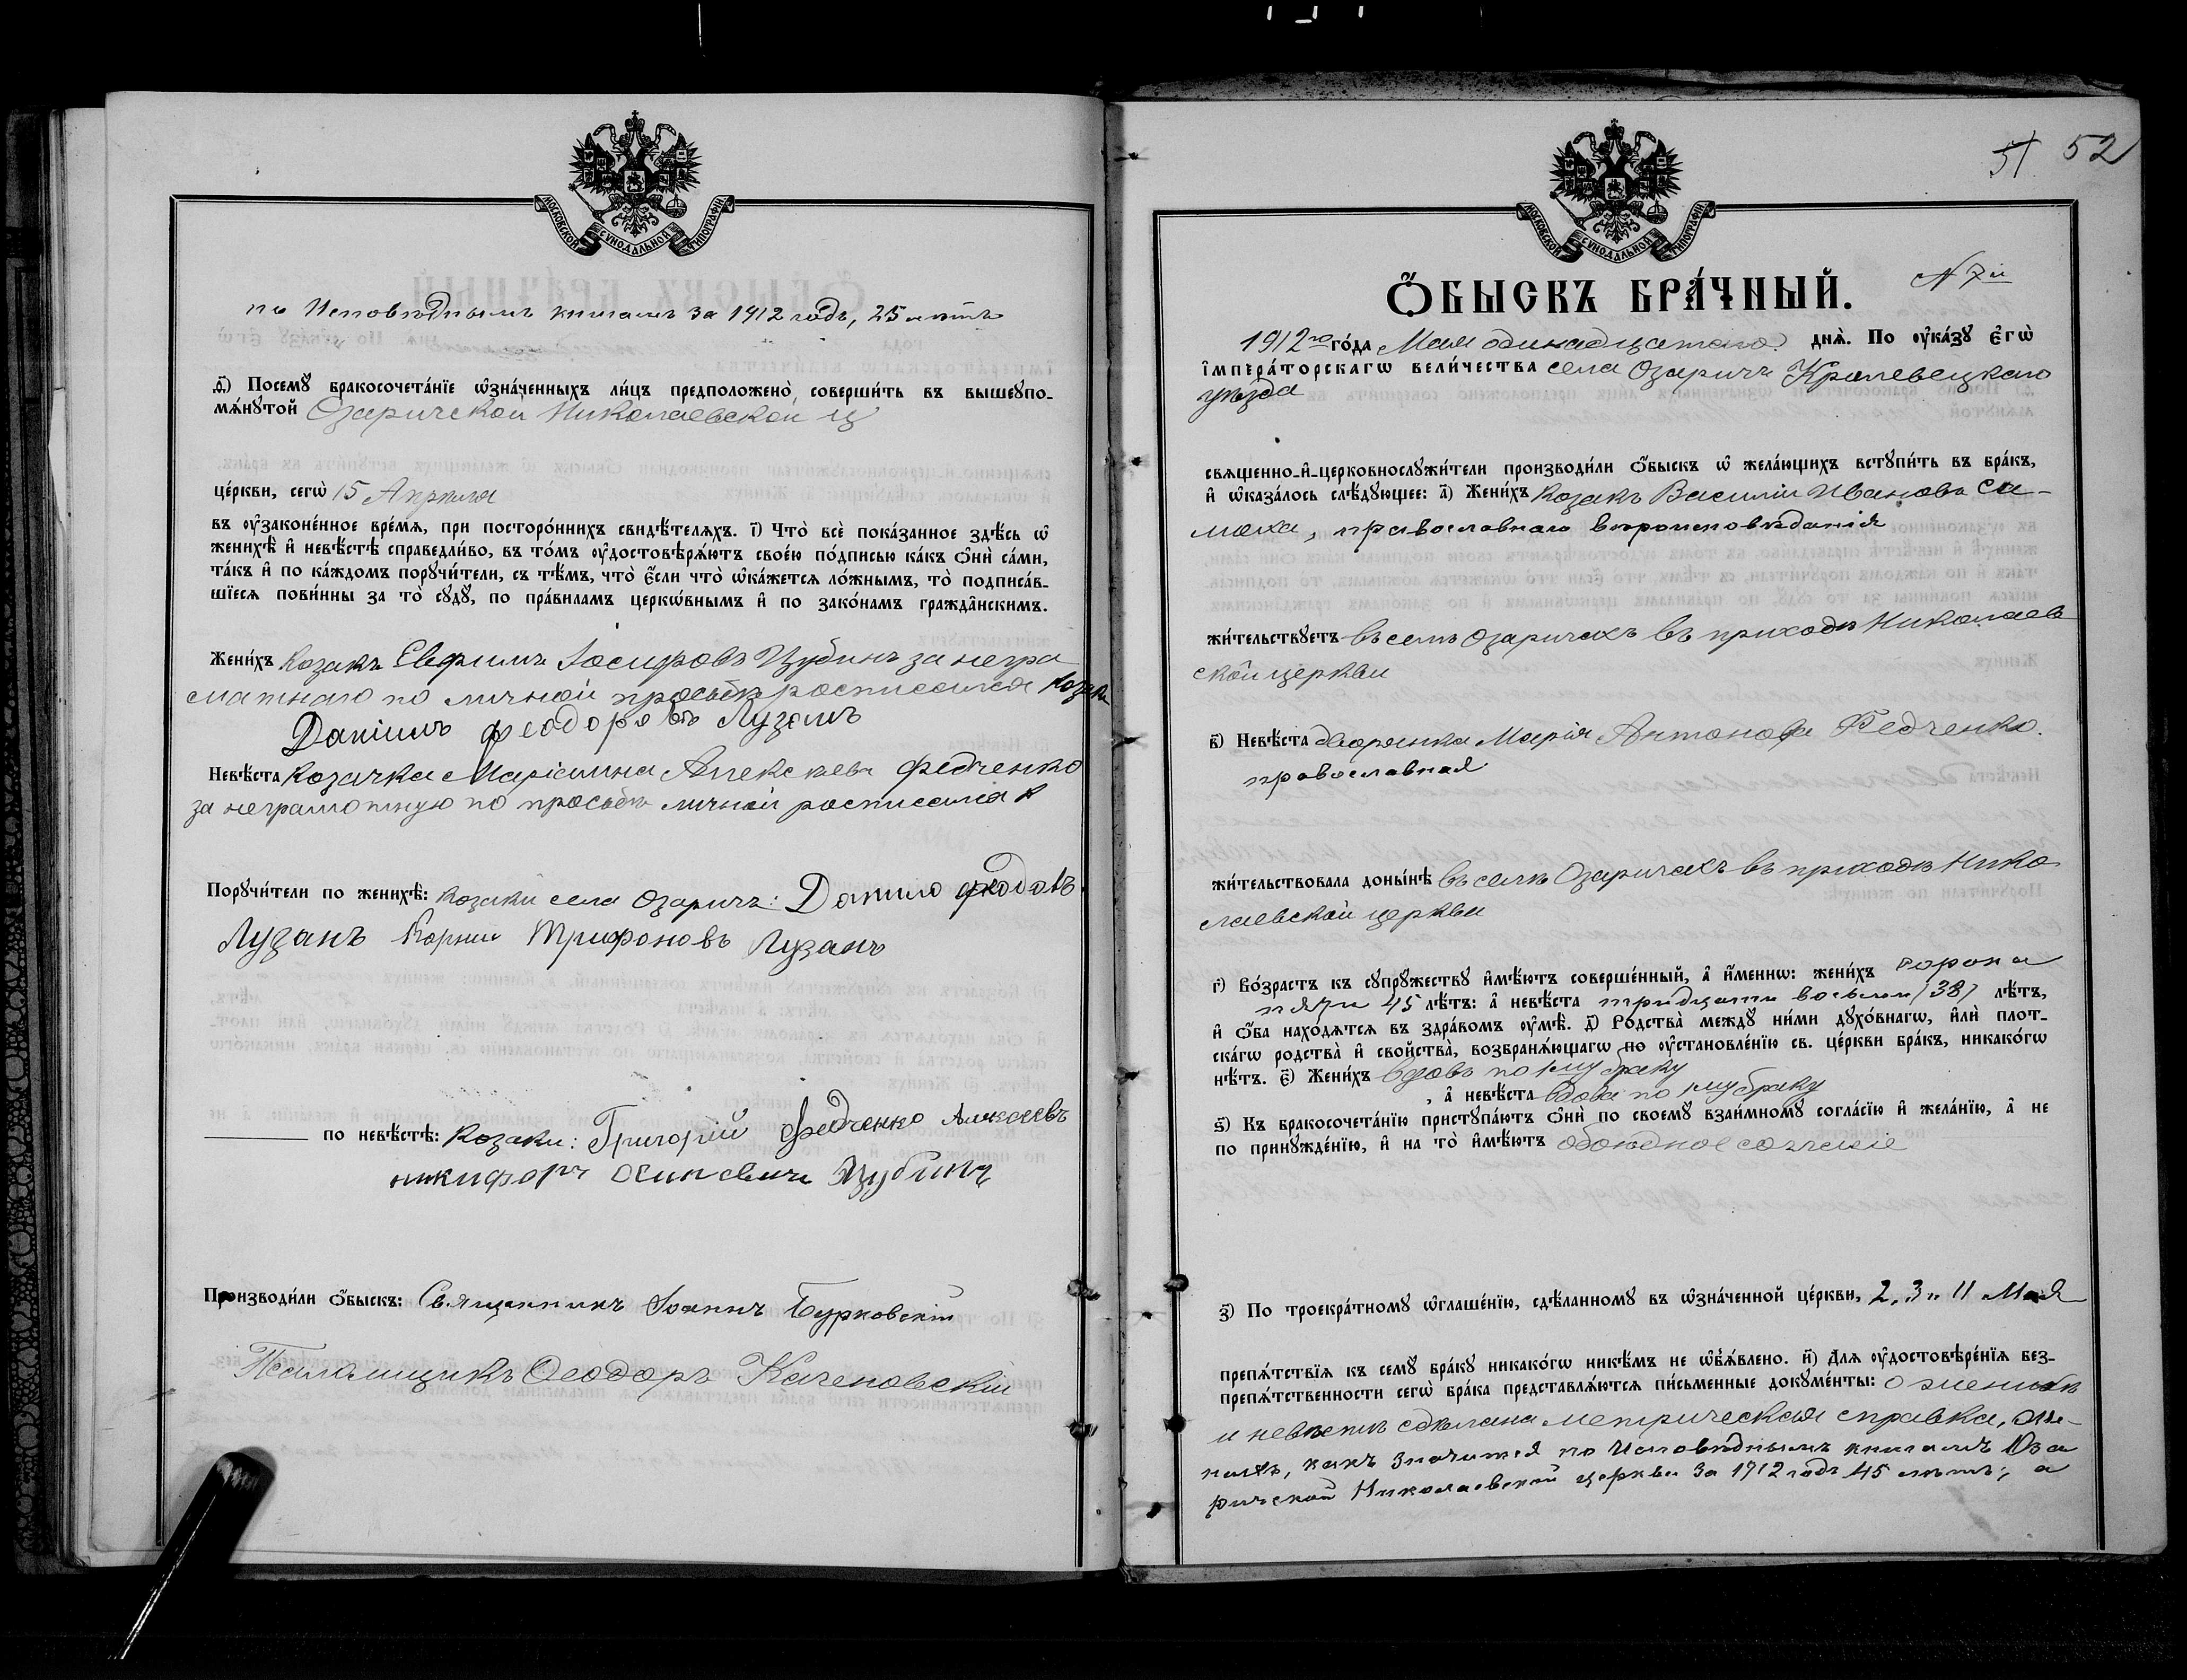 МОСКОВСКОЙ СѴНОДАЛЬНОЙ ТИПОГРАФІИ
по Исповѣднымъ книгамъ за 1912 годъ, 25 лѣтъ
ѳ҃) Посемꙋ бракосочета́нїе ѡ҆зна́ченныхъ ли́цъ предположено̀ соверши́ть въ вышеꙋпо-
мѧ́нꙋтой Озаричской Николаевской ц
це́ркви, сегѡ̀ 15 Апрѣля
въ ᲂу҆законе́нное вре́мѧ, при посторо́ннихъ свидѣ́телѧхъ. і҃) Что̀ всѐ пока́занное здѣ́сь ѡ҆
женихѣ̀ и҆ невѣ́стѣ справедли́во, въ то́мъ ᲂу҆достовѣрѧ́ютъ свое́ю по́дписью ка́къ ѻ҆нѝ са́ми,
та́къ и҆ по ка́ждомъ порꙋчи́тели, съ тѣ́мъ, что̀ є҆́сли что̀ ѡ҆ка́жетсѧ ло́жнымъ, то̀ подписа́в-
шїесѧ пови́нны за то̀ сꙋдꙋ̀, по пра́виламъ церко́внымъ и҆ по зако́намъ гражда̑нскимъ.
Жени́хъ козакъ Евфимъ Іосифовъ Цубинъ за негра
матнаго по личной просьбѣ росписался козакъ
Даніилъ феодоровъ Лузанъ
Невѣ́ста козачка Маріамна Алексѣева Федченко
за неграмотную по просьбѣ личной росписался
Порꙋчи́тели по женихѣ̀: козаки села Озаричъ: Данило федоровъ
Лузанъ Корнии Трифоновъ Лузанъ
по невѣ́стѣ: козаки: Григорій Федченко Алексеевъ
никифоръ осиповичъ Цубинъ
Производи́ли ѻ҆́быскъ: Священникъ Іоаннъ Бурковскій
Псаломщикъ Ѳеодоръ Каченовскій
51 52
МОСКОВСКОЙ СѴНОДАЛЬНОЙ ТИПОГРАФІИ
Ѻ҆́БЫСКЪ БРА́ЧНЫЙ. N 7й
1912го го́да Мая одинадцатаго днѧ̀. По ᲂу҆ка́зꙋ є҆гѡ̀
і҆мпера́торскагѡ вели́чества села Озаричъ Кролевецкаго
уѣзда
свѧщенно-и҆-церковнослꙋжи́тели производи́ли ѻ҆́быскъ ѡ҆ жела́ющихъ встꙋпи́ть въ бра́къ,
и҆ ѡ҆каза́лось слѣ́дꙋющее: а҃) Жени́хъ козакъ Василій Ивановъ Са-
маха, православнаго вѣроисповѣданія
жи́тельствꙋетъ въ селѣ Озаричахъ въ приходѣ Николаев
ской церкви
в҃) Невѣ́ста дворянка Марія Антонова Федченко.
православная
жи́тельствовала доны́нѣ въ селѣ Озаричахъ въ приходѣ Нико
лаевской церкви
г҃) Во́зрастъ къ сꙋпрꙋ́жествꙋ и҆мѣ́ютъ соверше́нный, а҆ и҆́меннѡ: жени́хъ сорока
пяти 45 лѣ́тъ: а҆ невѣ́ста тридцати восьми (38) лѣ́тъ,
и҆ ѻ҆́ба находѧ́тсѧ въ здра́вомъ ᲂу҆мѣ̀. д҃) Родства̀ междꙋ̀ ни́ми дꙋхо́внагѡ, и҆лѝ плот-
ска́гѡ родства̀ и҆ сво́йства, возбранѧ́ющагѡ по ᲂу҆становле́нїю св. це́ркви бра́къ, никако́гѡ
нѣ́тъ. є҃) Жени́хъ вдовъ по 1му браку
, а҆ невѣ́ста вдова по 1му браку
ѕ҃) Къ бракосочета́нїю пристꙋпа́ютъ ѻ҆нѝ по своемꙋ̀ взаи́мномꙋ согла́сїю и҆ жела́нїю, а҆ не
по принꙋжде́нїю, и҆ на то̀ и҆мѣ́ютъ обоюдное согласіе
з҃) По троекра́тномꙋ ѡ҆глаше́нїю, сдѣ́ланномꙋ въ ѡ҆зна́ченной це́ркви, 2, 3 и 11 Мая
препѧ́тствїѧ къ семꙋ̀ бра́кꙋ никако́гѡ никѣ́мъ не ѡ҆б̾ѧ́влено. и҃) Длѧ ᲂу҆достовѣре́нїѧ без-
препѧ́тственности сегѡ̀ бра́ка представлѧ́ютсѧ пи́сьменные докꙋме́нты: о женихѣ
и невѣстѣ сдѣлана метрическая справка,
какъ значится по Исповѣднымъ книгамъ Оза
ричской Николаевской церкви за 1912 годъ 45 лѣтъ; а